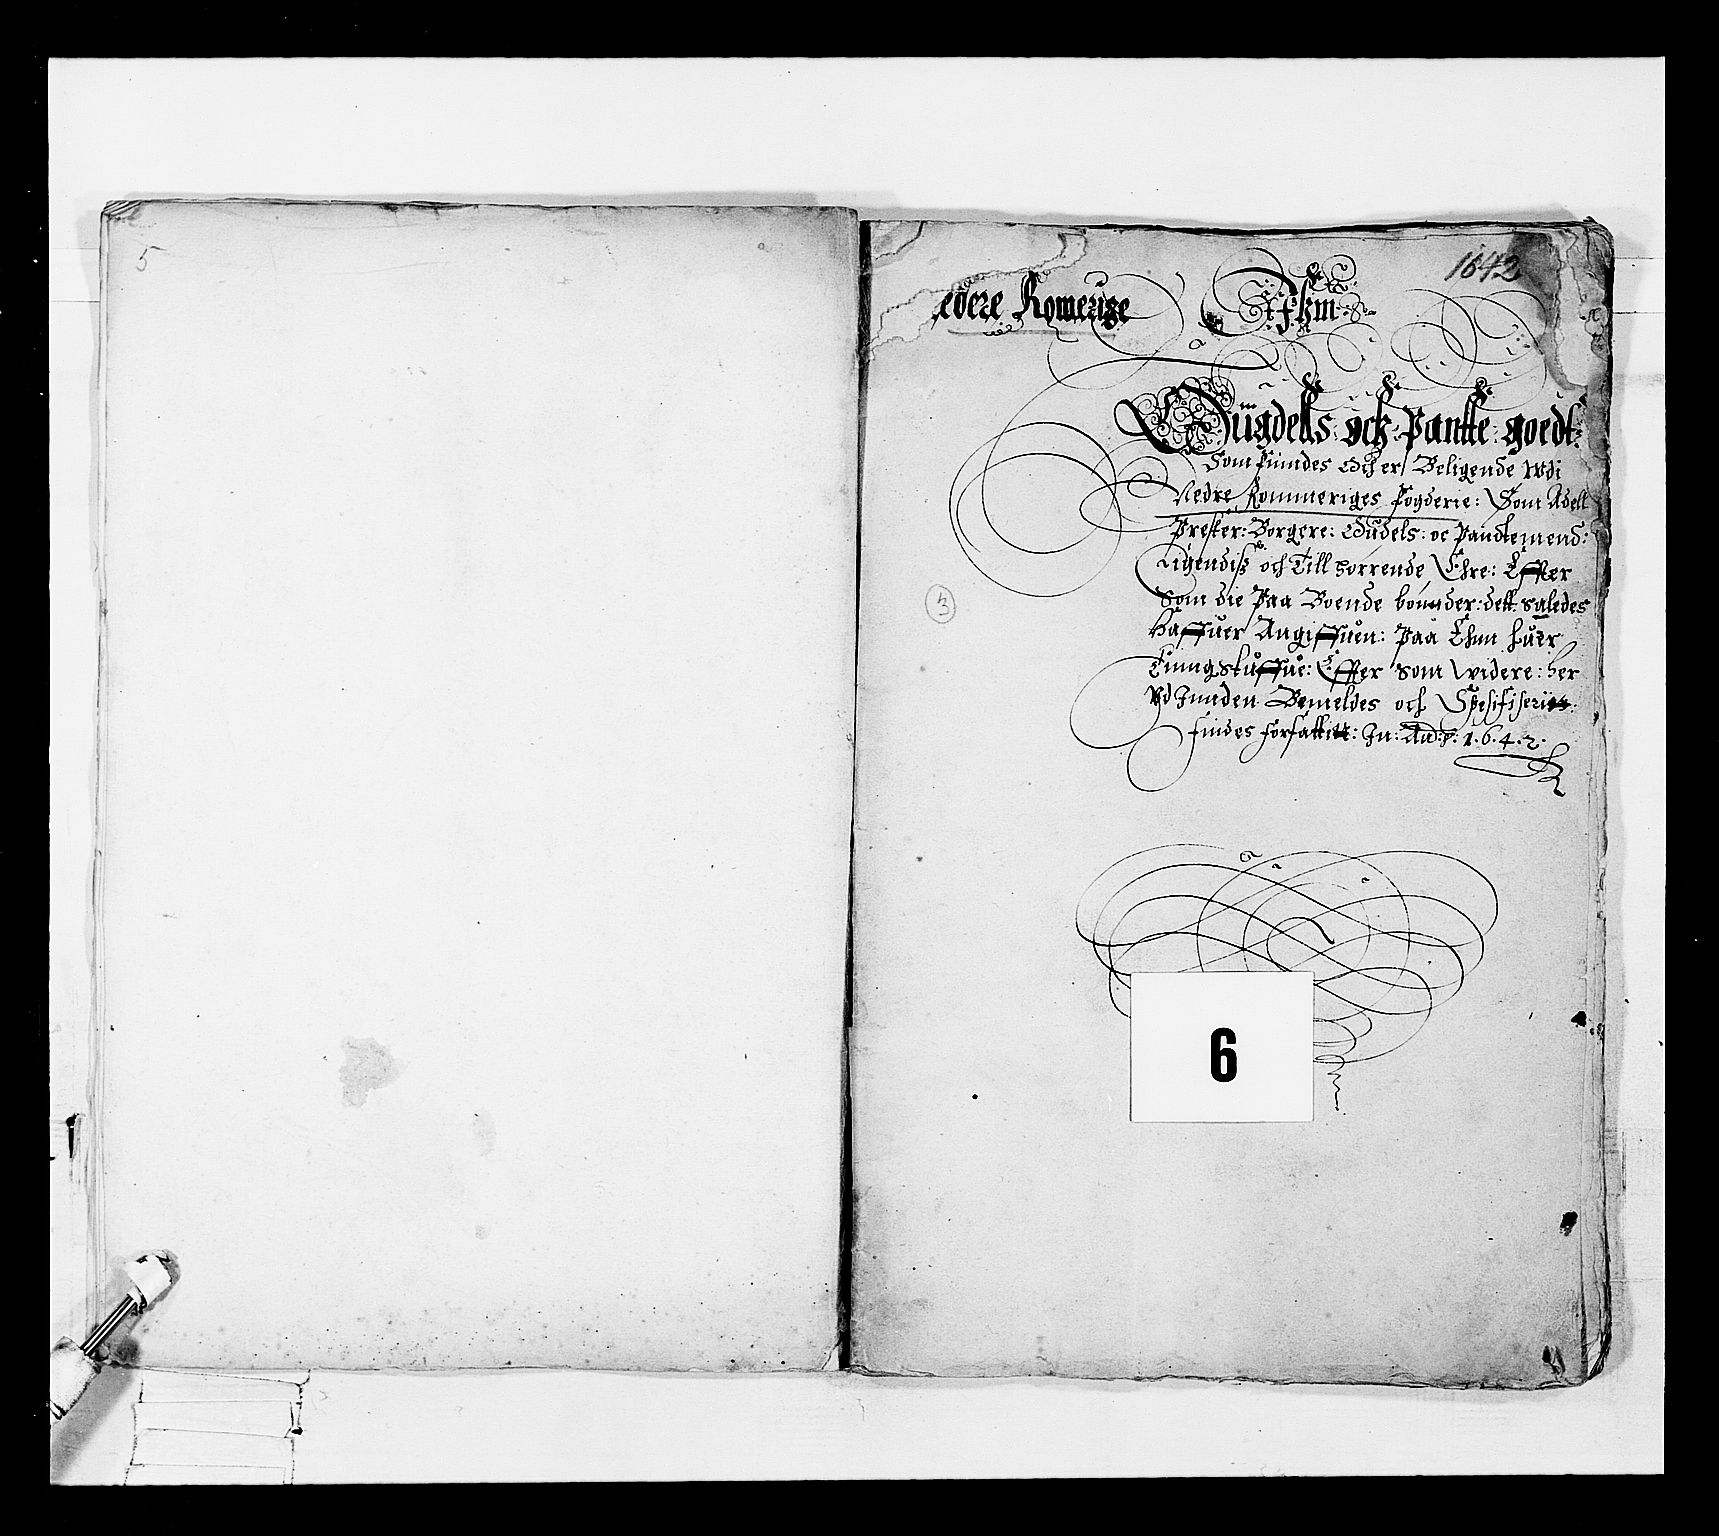 5
1642
edere Romerige
Odels ock Pantte goedt:
Som findes Och er Beligende Wdi
Nedre Rommeriges fogderie: Som Adell
Prester: Borgere: Oudels: oc Pandtemend:
och Till hørrende Ehre: Effter
Som die Paa Boende bønder: dett: saledes
Haffuer Angiffuen: Paa huer
Tingstuffue: Effter som widere: her
Vd Inden Bemeldes och Spesifiserit:
findes forfattitt: In: Ao: 1.6.4.2.
3
6